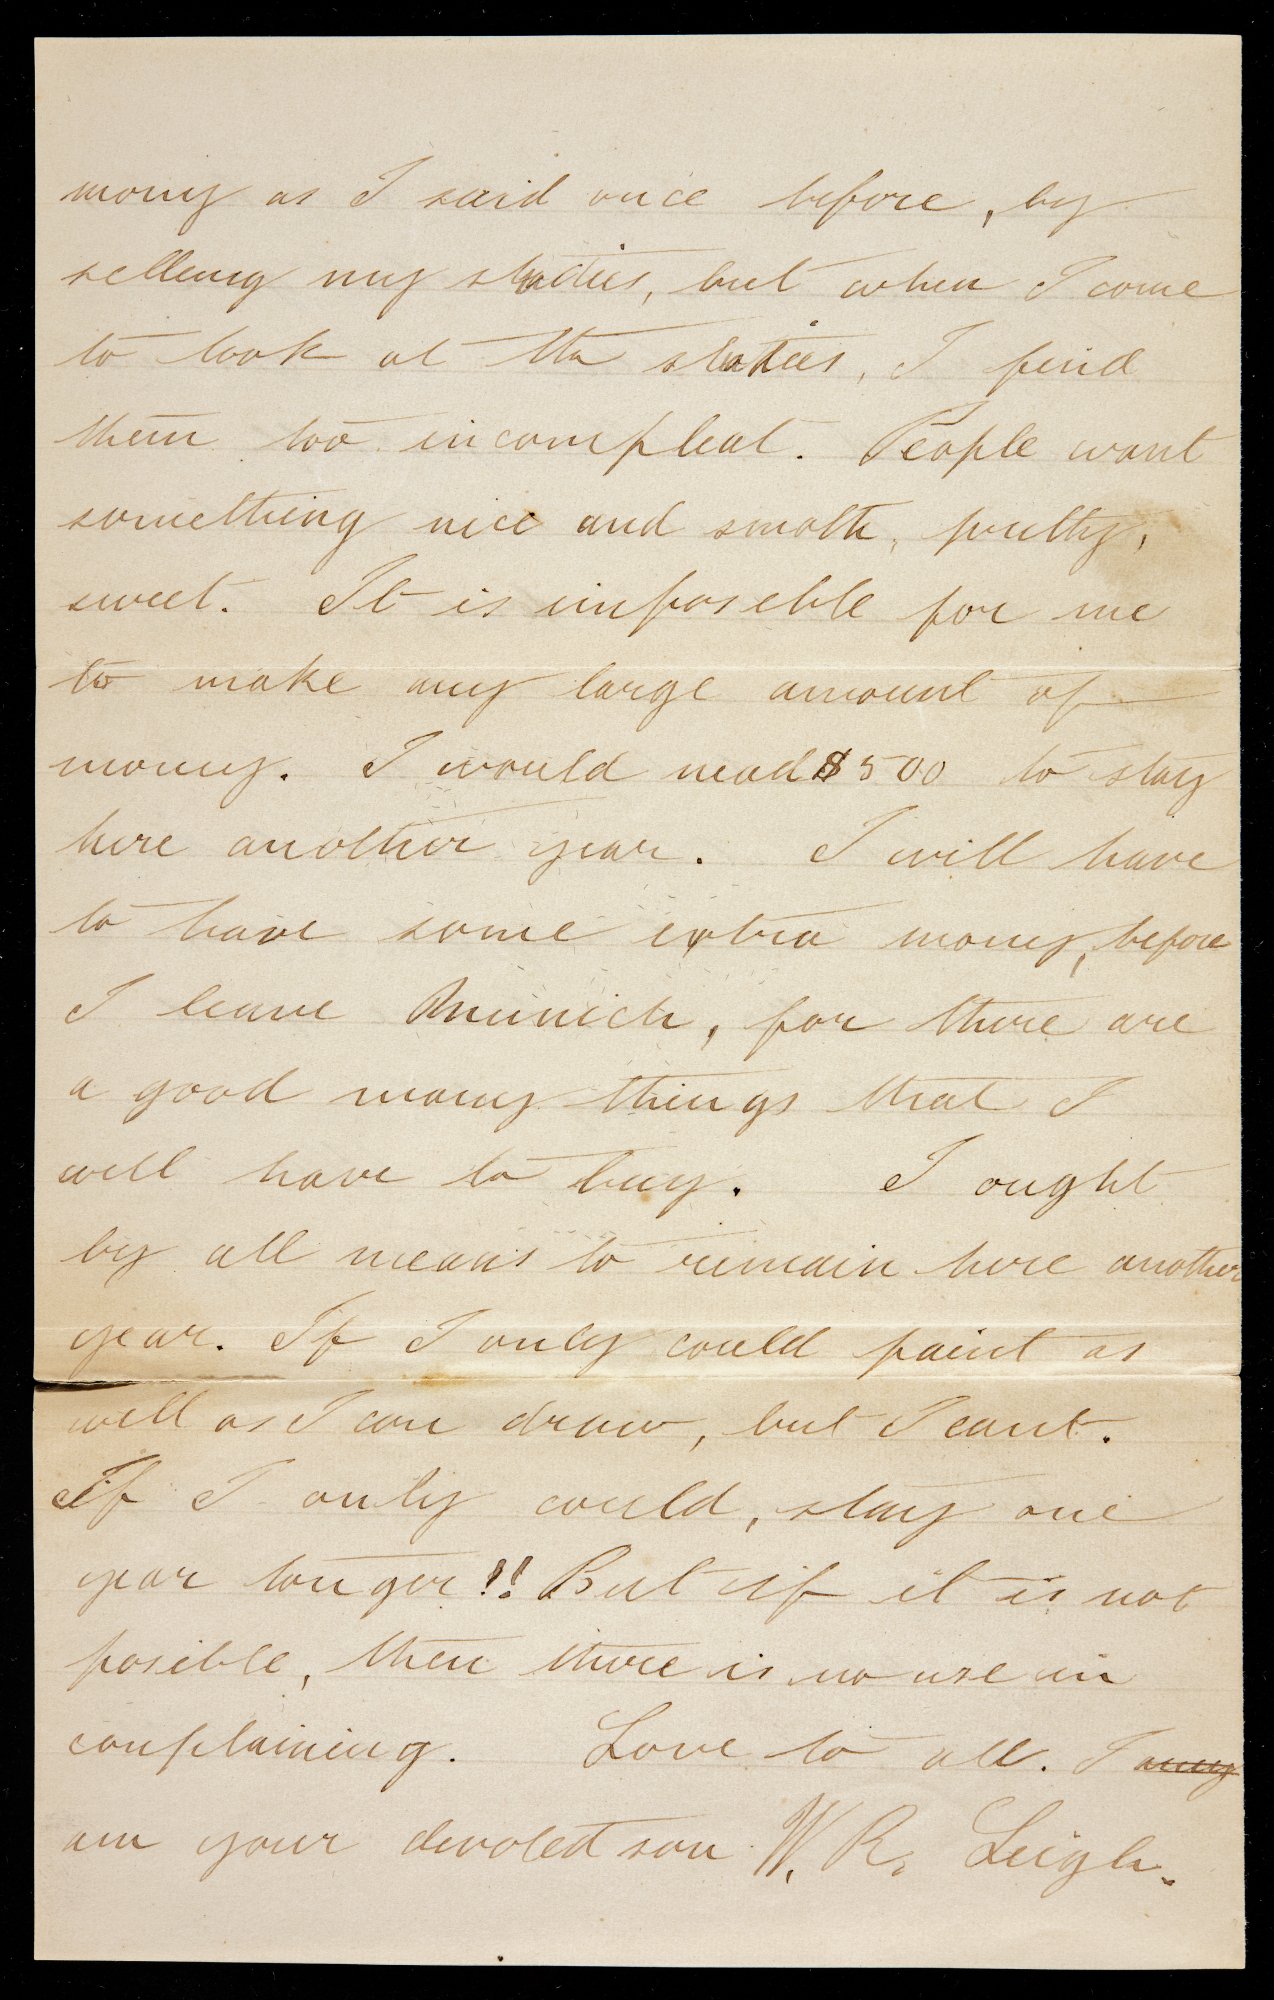 mony as I said once before, by
selling my studies, but when I come
to look at the studies, I find
them too incompleat. People want
something nice and smoth, pretty,
sweet. It is imposeble for me
to make any large amount of
mony. I would nead $500 to stay
here another year. I will have
to have some extra mony, before
I leave Munich, for there are
a good many things that I
will have to buy. I ought
by all means to remain here another
year. If I only could paint as
well as I can draw, but I cant.
If I only could, stay one
year longer!! But if it is not
poseble, then there is no use in
complaining. Love to all. I any
am your devoted son W. R. Leigh.